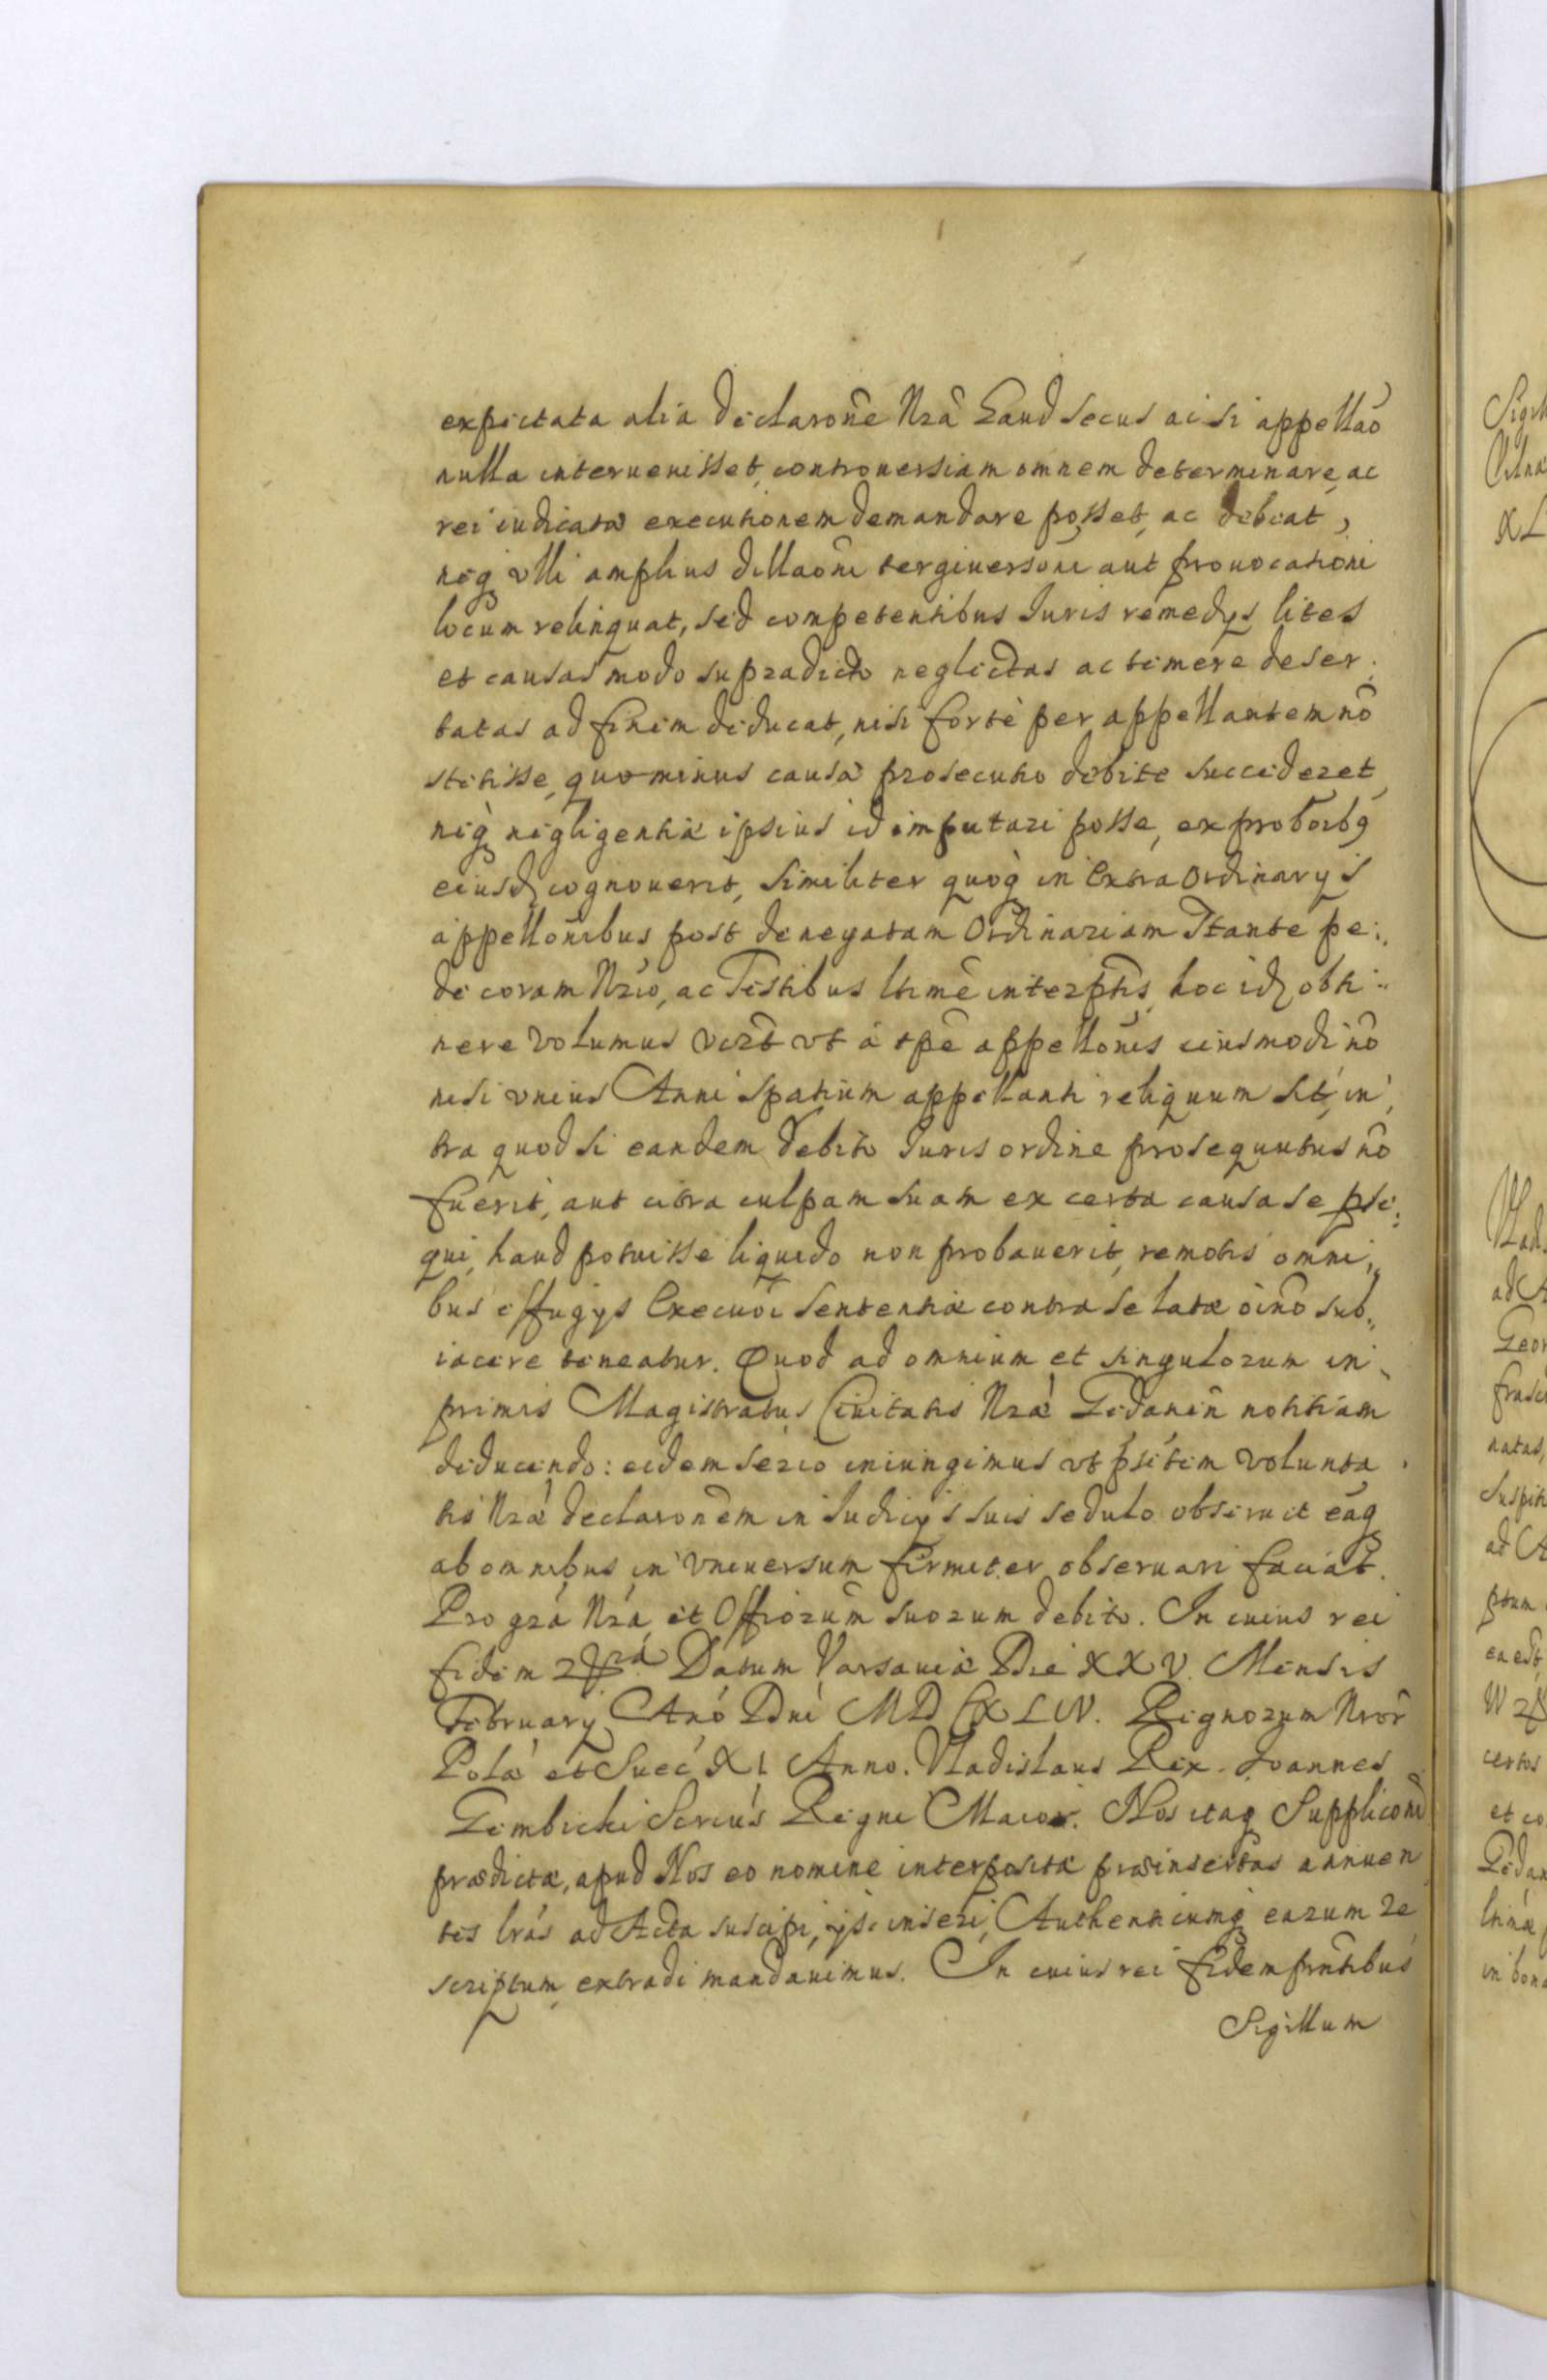 expectata alia declaroñe Nrã haud secus ac si appellaõ
nulla interuenisset, controuersiam omnem determinare, ac
rei iudicatæ executionem demandare posset, ac debeat,
neq ulli amplius dillaõni tergiuersõni aut prouocationi
locum relinquat, sed competentibus Iuris remedys lites
et causas modo supradicto neglectas ac temere deser,
tatas ad finem deducat, nisi fortè per appellantem nõ
stetisse, quominus causæ prosecutio debite succederet,
neq negligentiæ ipsius id imputari posse, ex
eiusd cognouerit, Similiter quoq in Extra Ordinarys
appellõnibus post denegatam Ordinariam Stante pe:,
de coram Nrio, ac Testibus ltimè interptis, hoc id obti:
nere Volumus vizt vt à tpe appellõnis eiusmodi nõ
nisi vnius Anni spatium appellanti reliquum sit, in,
tra quod si eandem debito Iuris ordine prosequutus nõ
fuerit, aut citra culpam suam ex certa causa se pse:
qui, haud potuisse liquido non probauerit, remotis omni,,
bus effugys Execuõi Sententiæ contra se latæ oĩno sub,,
iacere teneatur. Quod ad omnium et singulorum in
primis Magistratus Ciuitatis Nræ Gedaneñ notitiam
deducendo: eidem serio iniungimus vt psẽtem volunta,
tis Nræ declaronẽm in Iudicys suis sedulo obseruet eãq
ab omnibus in vniuersum firmiter obseruari faciat.
Pro grã Nrã, et Offiorum suorum debito. In cuius rei
fidem Datum Varsauiæ Die XXV. Mensis
February Anõ Dni MDCXLIV. Regnorum Nror
Polæ et Suec XI Anno. Vladislaus Rex. Joannes
Gembicki Secrius Regni Maior. Nos itaq Supplicõni
prædictæ, apud Nos eo nomine interpositæ præinsertas annuen
tes lrás ad Acta suscipi, ijsc inseri, Authenticumq earum Re
scriptum, extradi mandauimus. In cuius rei fidem pñtibus
Sigillum
Sigil
XL
ad A
Geor
frasc
natas,
Suspit
ad A
ptum
ea est,
certos
et co
Gedan
ltimæ
in bona